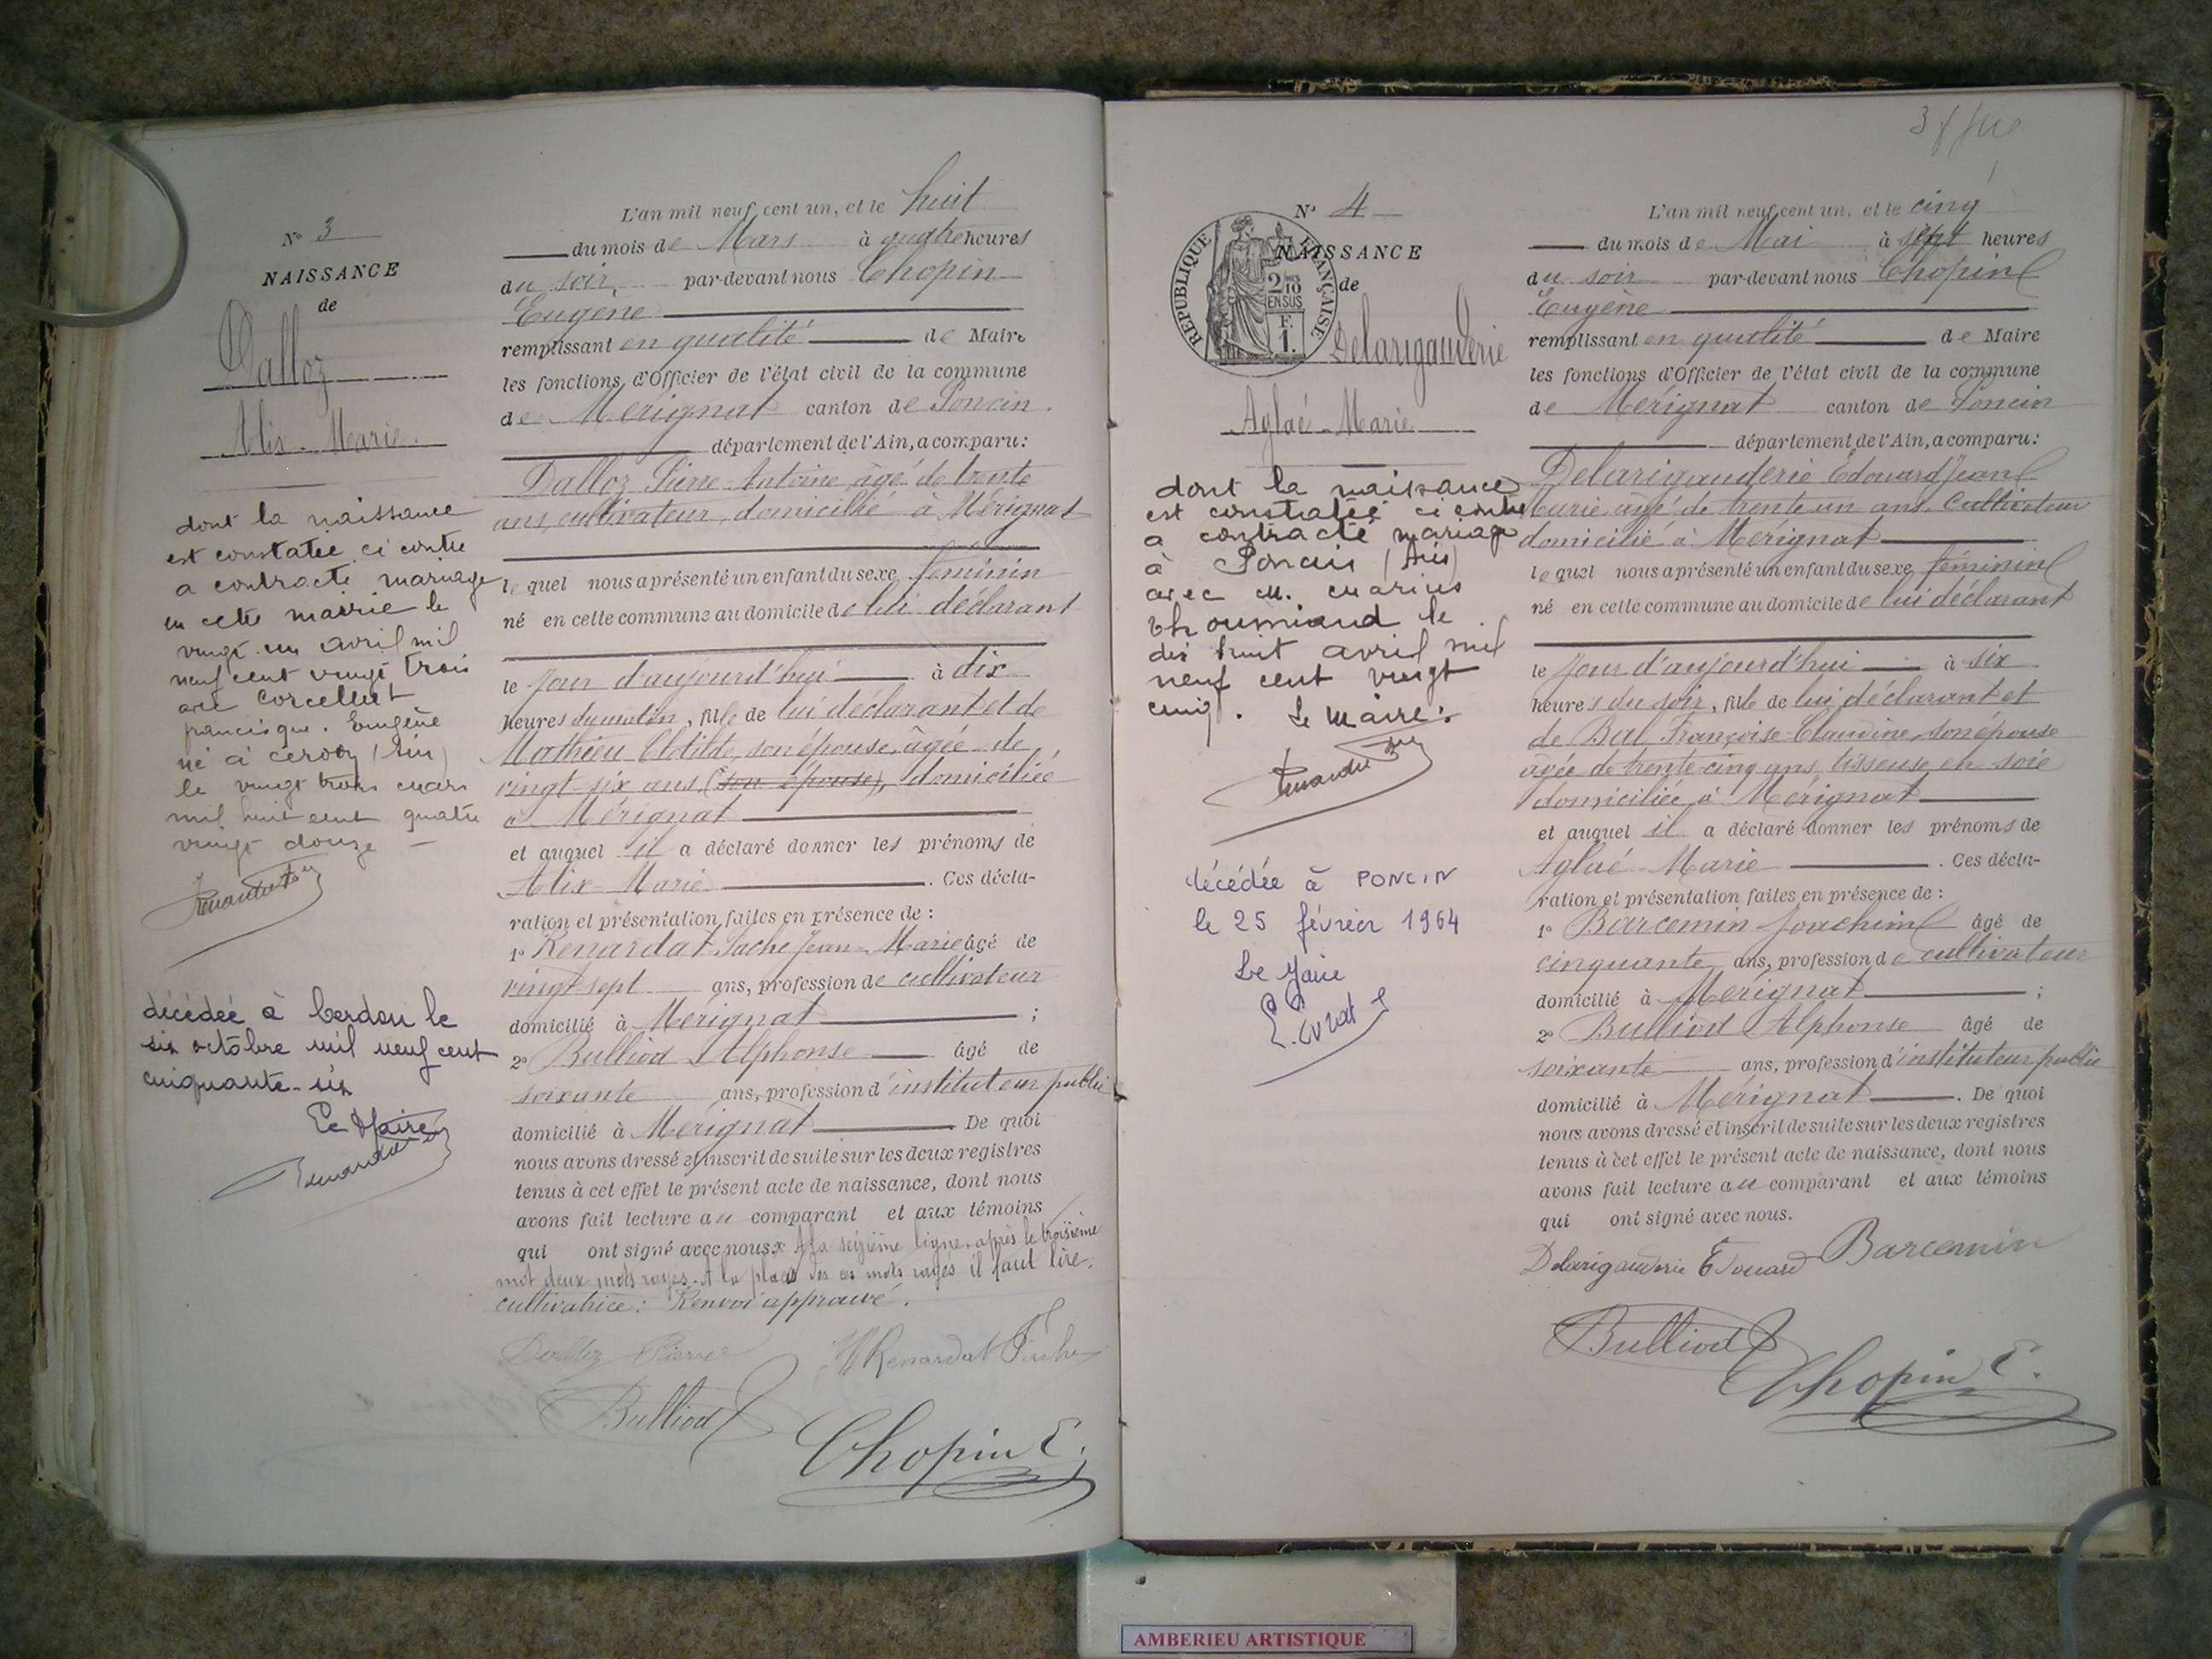 N° 3
NAISSANCE
de
Dalloz
Alix-Marie
dont la naissance
est constatée ci contre
a contracté mariage
en cette mairie le
vingt-un avril mil
neuf cent vingt trois
avec Corcellut
francisque. Eugène
né à Cerdon (Ain)
le vingt trois mars
mil huit cent quatre
vingt douze —
décédée à Cerdon le
six octobre mil neuf cent
cinquante-six
Le Maire
L'an mil neuf cent un, et le huit
du mois de Mars à quatre heures
du soir par-devant nous Chopin
Eugène
remplissant en qualité de Maire
les fonctions d'Officier de l'état civil de la commune
de Mérignat canton de Poncin.
département de l'Ain, a comparu:
Dalloz Pierre Antoine, âgé de trente
ans, cultivateur, domicilié à Mérignat
lequel nous a présenté un enfant du sexe féminin
né en cette commune au domicile de lui déclarant
le jour d'aujourd'hui à dix
heures du matin, fille de lui déclarant et de
Mathieu Clotilde, son épouse, âgée de
vingt-six ans, (son épouse), domiciliée
à Mérignat
et auquel il a déclaré donner les prénoms de
Alix-Marie. Ces décla-
ration et présentation faites en présence de:
1° Renardat-Fache Jean-Marie âgé de
vingt sept ans, profession de cultivateur
domicilié à Mérignat;
2° Bulliod Alphonse âgé de
soixante ans, profession d'instituteur public
domicilié à Mérignat. De quoi
nous avons dressé et inscrit de suite sur les deux registres
tenus à cet effet le présent acte de naissance, dont nous
avons fait lecture au comparant et aux témoins
qui ont signé avec nous. x A la seizième ligne, après le troisième
mot deux mots rayés. A la place des es mots rayés il faut lire:
cultivatrice: Renvoi approuvé.
Dalloz Pierre JM Renardat Fache
Bulliod
Chopin E.
N° 4
NAISSANCE
de
RÉPUBLIQUE FRANÇAISE
2/10 EN SUS
F. 1.
Delarigauderie
Aglaé-Marie
dont la naissance
est constatée ci contre
a contracté mariage
à Poncin (Ain)
avec M. Marius
Thoumiand le
dix huit avril mil
neuf cent vingt
cinq. Le Maire:
décédée à PONCIN
le 25 février 1964
Le Maire
L'an mil neuf cent un, et le cinq
du mois de Mai à sept heures
du soir par-devant nous Chopin
Eugène
remplissant en qualité de Maire
les fonctions d'Officier de l'état civil de la commune
de Mérignat canton de Poncin
département de l'Ain, a comparu:
Delarigauderie Edouard Jean
Marie, âgé de trente un ans, Cultivateur
domicilié à Mérignat
lequel nous a présenté un enfant du sexe féminin
né en cette commune au domicile de lui déclarant
le jour d'aujourd'hui à six
heures du soir, fille de lui déclarant et
de Bal Françoise-Claudine, son épouse
âgée de trente-cinq ans, tisseuse en soie
domiciliée à Mérignat
et auquel il a déclaré donner les prénoms de
Aglaé-Marie. Ces décla-
ration et présentation faites en présence de:
1° Barcemin Joachim âgé de
cinquante ans, profession de cultivateur
domicilié à Mérignat;
2° Bulliod Alphonse âgé de
soixante ans, profession d'instituteur public
domicilié à Mérignat. De quoi
nous avons dressé et inscrit de suite sur les deux registres
tenus à cet effet le présent acte de naissance, dont nous
avons fait lecture au comparant et aux témoins
qui ont signé avec nous.
Delarigauderie Edouard Barcemin
Bulliod
Chopin E.
AMBERIEU ARTISTIQUE